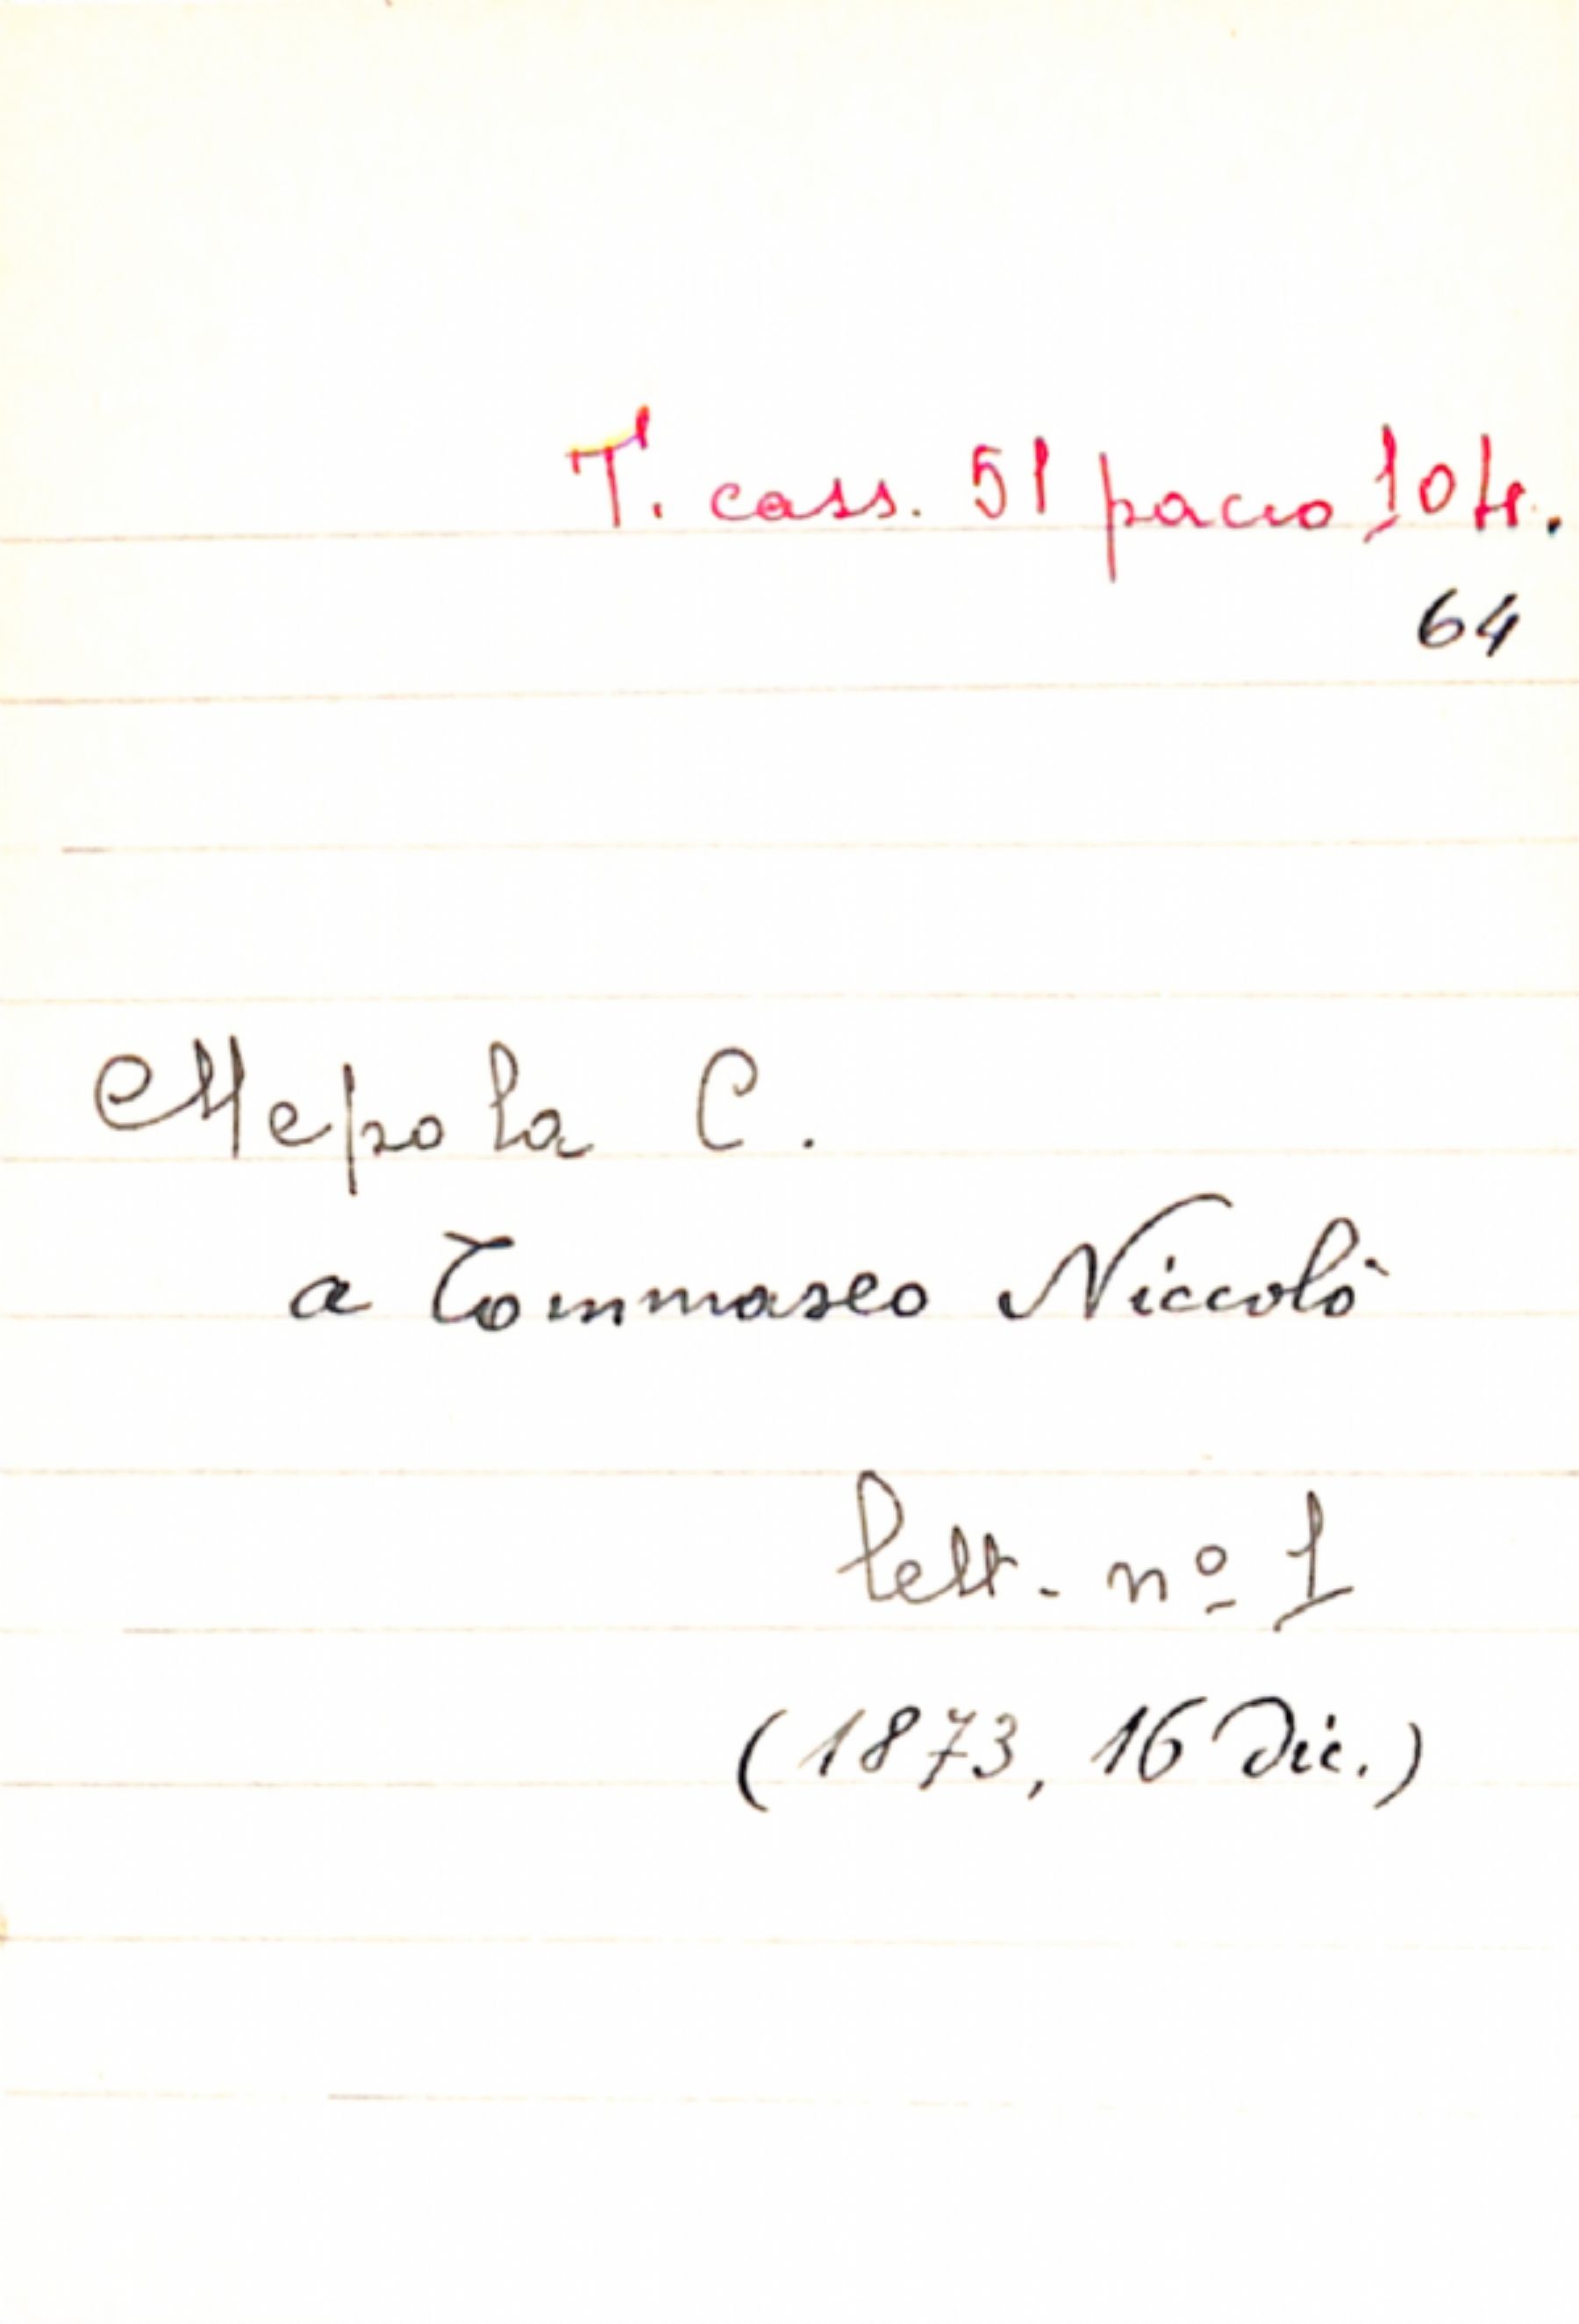 T. cass. 51 pacco 104.
64
Mepola C.
a Tommaseo Niccolò
lett. nº 1
(1873, 16 Dic.)